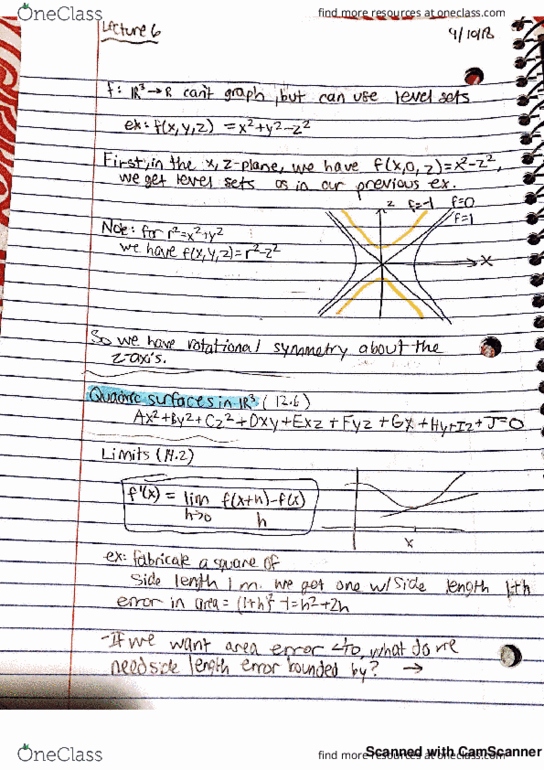 OneClass
find more resources at oneclass.com
Lecture 6
4/10/18
f: ℝ³→ℝ can't graph, but can use level sets
ex: f(x,y,z) = x²+y²-z²
First, in the x,z-plane, we have f(x,0,z)=x²-z²,
we get level sets as in our previous ex.
z f=-1 f=0
f=1
Note: for r²=x²+y²
we have f(x,y,z)=r²-z²
x
So we have rotational symmetry about the
z-axis.
Quadric surfaces in ℝ³ (12.6)
Ax²+By²+Cz²+Dxy+Exz+Fyz+Gx+Hy+Iz+J=0
Limits (14.2)
f'(x) = lim f(x+h)-f(x)
h→0 h
x
ex: fabricate a square of
side length 1 m. we get one w/side length 1+h
error in area = (1+h)²-1=h²+2h
-If we want area error what do we
need side length error bounded by? →
OneClass
find more resources at oneclass.com
Scanned with CamScanner